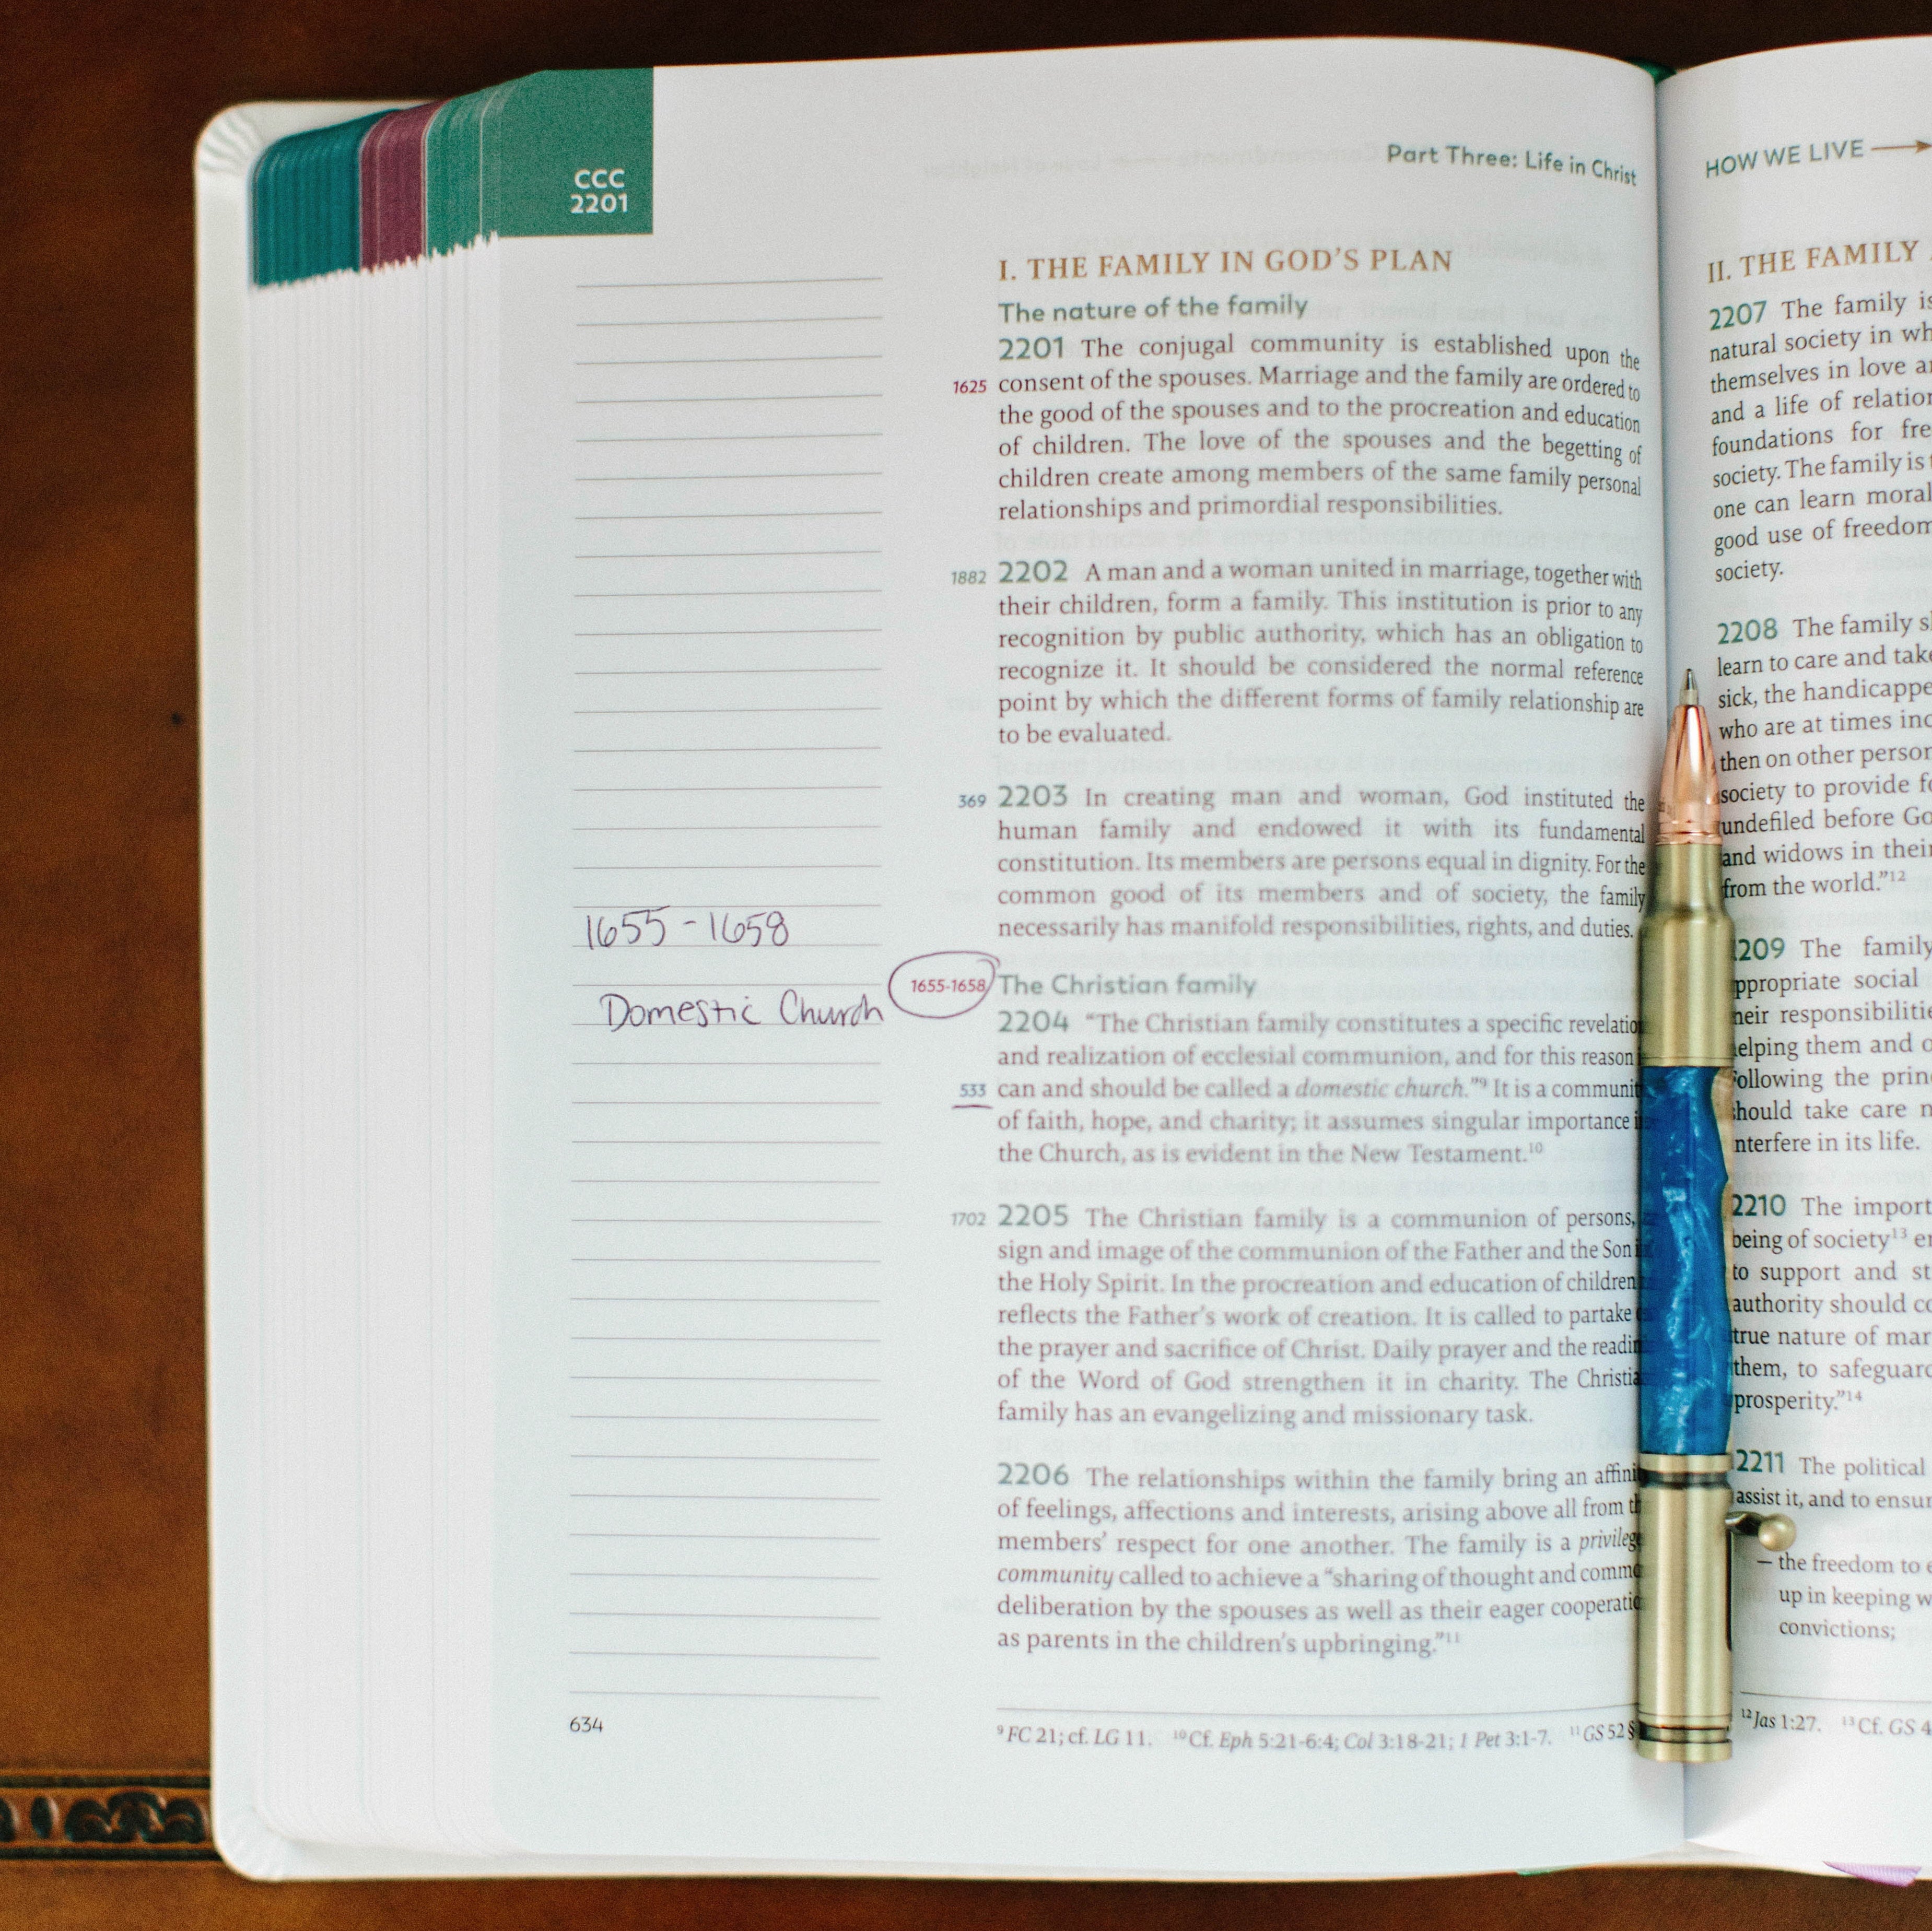 CCC
2201
Part Three: Life in Christ
I. THE FAMILY IN GOD'S PLAN
The nature of the family
2201 The conjugal community is established upon the
1625 consent of the spouses. Marriage and the family are ordered to
the good of the spouses and to the procreation and education
of children. The love of the spouses and the begetting of
children create among members of the same family personal
relationships and primordial responsibilities.
1882 2202 A man and a woman united in marriage, together with
their children, form a family. This institution is prior to any
recognition by public authority, which has an obligation to
recognize it. It should be considered the normal reference
point by which the different forms of family relationship are
to be evaluated.
369 2203 In creating man and woman, God instituted the
human family and endowed it with its fundamental
constitution. Its members are persons equal in dignity. For the
common good of its members and of society, the family
necessarily has manifold responsibilities, rights, and duties.
1655-1658
Domestic Church
1655-1658 The Christian family
2204 "The Christian family constitutes a specific
and realization of ecclesial communion, and for this reason
533 can and should be called a domestic church."⁹ It is a
of faith, hope, and charity; it assumes singular importance
the Church, as is evident in the New Testament.¹⁰
1702 2205 The Christian family is a communion of persons,
sign and image of the communion of the Father and the Son
the Holy Spirit. In the procreation and education of children
reflects the Father's work of creation. It is called to partake
the prayer and sacrifice of Christ. Daily prayer and the
of the Word of God strengthen it in charity. The
family has an evangelizing and missionary task.
2206 The relationships within the family bring an
of feelings, affections and interests, arising above all from
members' respect for one another. The family is a
community called to achieve a "sharing of thought and
deliberation by the spouses as well as their eager
as parents in the children's upbringing."¹¹
⁹ FC 21; cf. LG 11. ¹⁰ Cf. Eph 5:21-6:4; Col 3:18-21; 1 Pet 3:1-7. ¹¹ GS 52 §
634
HOW WE LIVE →
II. THE FAMILY
2207 The family is
natural society in
themselves in love
and a life of
foundations for
society. The family is
one can learn moral
good use of freedom
society.
2208 The family
learn to care and take
sick, the
who are at times
then on other
society to provide
undefiled before
and widows in their
from the world."¹²
2209 The family
appropriate social
their
helping them and
Following the
should take care
interfere in its life.
2210 The
being of society¹³
to support and
authority should
true nature of
them, to
prosperity."¹⁴
2211 The political
assist it, and to
– the freedom to
up in keeping
convictions;
¹² Jas 1:27. ¹³ Cf. GS